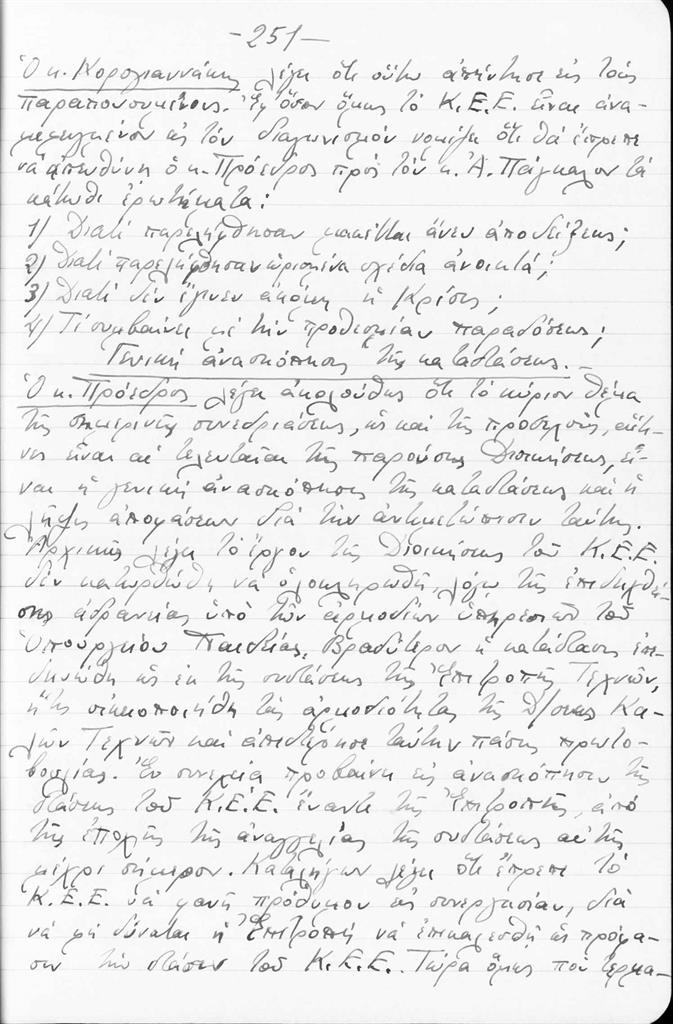 -251-
Ὁ κ. Κορογιαννάκης λέγει ὅτι οὕτω ἀπήντησε εἰς τοὺς
παραπονουμένους. Ἐφ' ὅσον ὅμως τὸ Κ.Ε.Ε. εἶναι ἀνα-
μεμιγμένον εἰς τὸν διαγωνισμὸν νομίζει ὅτι θὰ ἔπρεπε
νὰ ἀπευθύνῃ ὁ κ. Πρόεδρος πρὸς τὸν κ. Ἀ. Πάγκαλον τὰ
κάτωθι ἐρωτήματα:
1/ Διατί παρελήφθησαν μακέτται ἄνευ ἀποδείξεως;
2/ Διατί παρελήφθησαν ὡρισμένα σχέδια ἀνοικτά;
3/ Διατί δὲν ἔγινεν ἀκόμη ἡ Κρίσις;
4/ Τί συμβαίνει μὲ τὴν προθεσμίαν παραδόσεως;
Γενικὴ ἀνασκόπησις τῆς καταστάσεως.-
Ὁ κ. Πρόεδρος λέγει ἀκολούθως ὅτι τὸ κύριον θέμα
τῆς σημερινῆς συνεδριάσεως, ὡς καὶ τῆς προσεχοῦς, αἵτι-
νες εἶναι αἱ τελευταῖαι τῆς παρούσης Διοικήσεως, εἶ-
ναι ἡ γενικὴ ἀνασκόπησις τῆς καταστάσεως καὶ ἡ
λῆψις ἀποφάσεων διὰ τὴν ἀντιμετώπισιν ταύτης.
Ἀρχικῶς λέγει τὸ ἔργον τῆς Διοικήσεως τοῦ Κ.Ε.Ε.
δὲν κατωρθώθη νὰ ὁλοκληρωθῇ, λόγῳ τῆς ἐπιδειχθεί-
σης ἀδρανείας ὑπὸ τῶν ἁρμοδίων ὑπηρεσιῶν τοῦ
Ὑπουργείου Παιδείας. Βραδύτερον ἡ κατάστασις ἐπε-
δεινώθη ὡς ἐκ τῆς συστάσεως τῆς Ἐπιτροπῆς Τεχνῶν,
ἥτις οἰκειοποιήθη τὰς ἁρμοδιότητας τῆς Δ/σεως Κα-
λῶν Τεχνῶν καὶ ἀπεστέρησε ταύτην πάσης πρωτο-
βουλίας. Ἐν συνεχείᾳ προβαίνει εἰς ἀνασκόπησιν τῆς
στάσεως τοῦ Κ.Ε.Ε. ἔναντι τῆς Ἐπιτροπῆς, ἀπὸ
τῆς ἐποχῆς τῆς ἀναγγελίας τῆς συστάσεως αὐτῆς
μέχρι σήμερον. Καταλήγων λέγει ὅτι ἔπρεπε τὸ
Κ.Ε.Ε. νὰ φανῇ πρόθυμον εἰς συνεργασίαν, διὰ
νὰ μὴ δύναται ἡ Ἐπιτροπὴ νὰ ἐπικαλεσθῇ ὡς πρόφα-
σιν τὴν στάσιν τοῦ Κ.Ε.Ε. Τώρα ὅμως ποὺ τερμα-